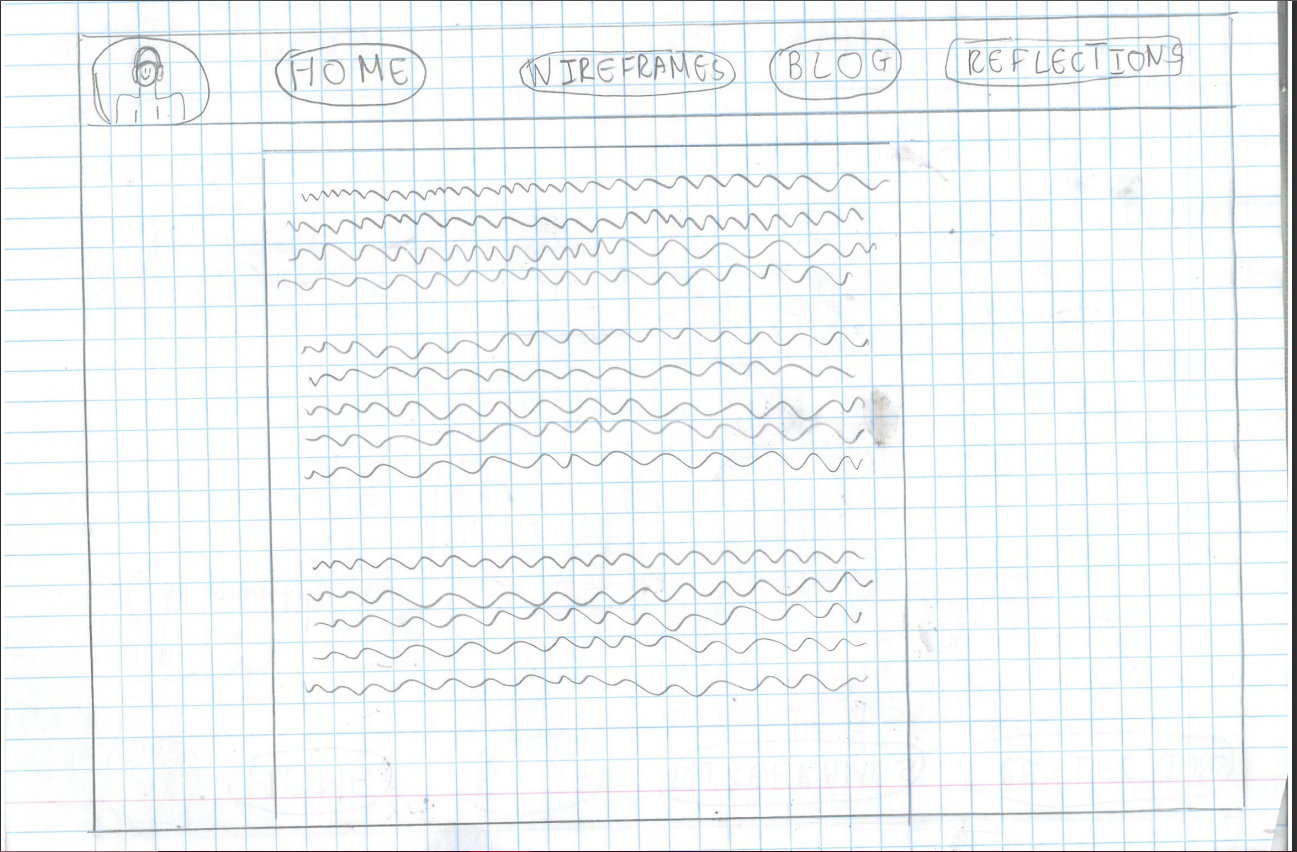 HOME WIREFRAMES BLOG REFLECTIONS